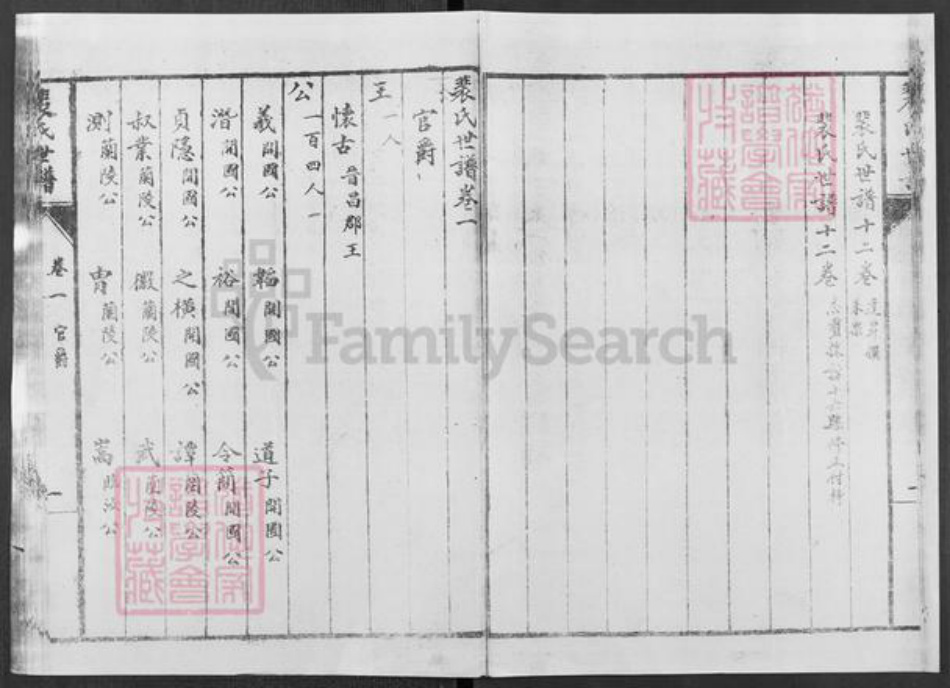 裴氏世譜十二卷
裴氏世譜十二卷
裴氏世譜卷一
官爵
王 一人
懷古 晋昌郡王
公 一百四人
羲 開國公 韜 開國公 道子 開國公
潛 開國公 裕 開國公 令簡 開國公
貞隱 開國公 之橫 開國公 譚 蘭陵公
叔業 蘭陵公 徽 蘭陵公 武 蘭陵公
測 蘭陵公 胄 蘭陵公 嵩
裴氏世譜
卷一 官爵
一
FamilySearch